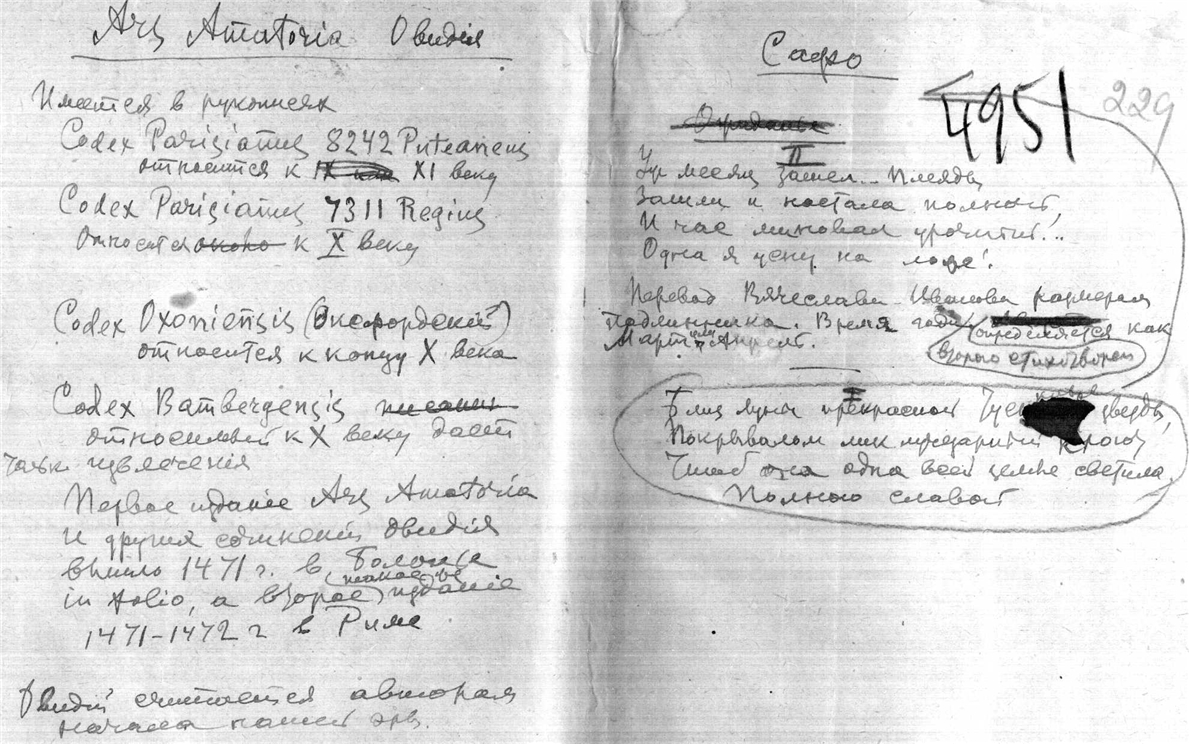 Ars Amatoria Овидiя
Имеется в рукописях
Codex Parisianus 8242 Puteaneus
относится к IX XI веку
Codex Parisianus 7311 Regius
относится около к X веку
Codex Oxoniensis (Оксфордский)
относится к концу X века
Codex Bambergensis
относимый к X веку даёт
извлеченiя
Первое изданiе Ars Amatoria
и других сочинений Овидiя
вышло 1471 г. в Болонье
in folio, а второе (такое же) изданiе
1471-1472 г в Риме
Овидий считается автором
начала нашей эры.
Сафо
4951
229
Ожиданье
II
Уж месяц зашел... Плеяды
Зашли и настала полночь,
И час миновал урочный!..
Одна я сплю на ложе!
Перевод Вячеслава Иванова размером
подлинника. Время года определяется как
Март или Апрель.
второго стихотворен
I
Близ луны прекрасной звезды,
Покрывалом лик кроют
Чтоб она одна всей земле светила
Полною славой